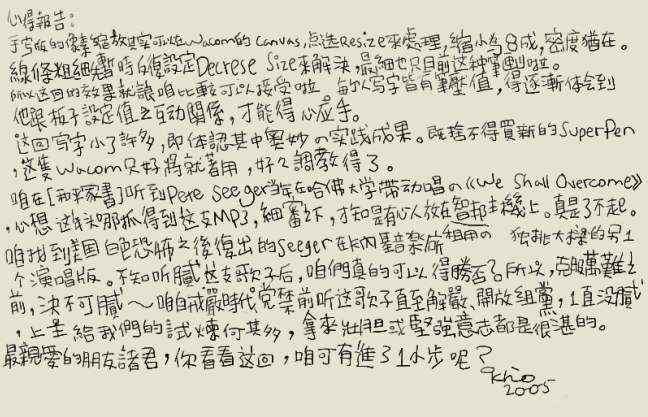 心得報告：
手写版的像素縮放其实可以在Wacom的Canvas,点选Resize來處理,縮小為8成,密度猶在。
線條粗細暫時行後設定Decrese Size來解決,最細也只目前这种筆劃啦。
所以这回的效果就讓咱比較可以接受啦 每个人写字皆有筆壓值,得逐漸体会到
他跟板子設定值之互動關係,才能得心应手。
这回写字小了許多,即体認其中奧妙の实践成果。既捨不得買新的SuperPen
,这隻Wacom只好將就著用,好久調教得了。
咱在[和平家書]听到Pete Seeger当年在哈佛大学帶动唱の《We Shall Overcome》
,心想 这年头那抓得到这支MP3,細審之下,才知是有心人放在智邦主機上。真是了不起。
咱找到美国白色恐怖之後復出的Seeger在卡內基音楽所租用の 独挑大樑的另1
个演唱版。不知听膩这支歌子后,咱們真的可以得勝否？所以,克服萬難之
前,決不可膩～咱自戒嚴時代党禁前听这歌子直至解嚴、開放組黨,1直没膩
,上主給我們的試煉何其多,拿來壯胆或堅強意志都是很湛的。
最親爱的朋友諸君,你看看这回,咱可有進了1小步呢？
qkhio
2005